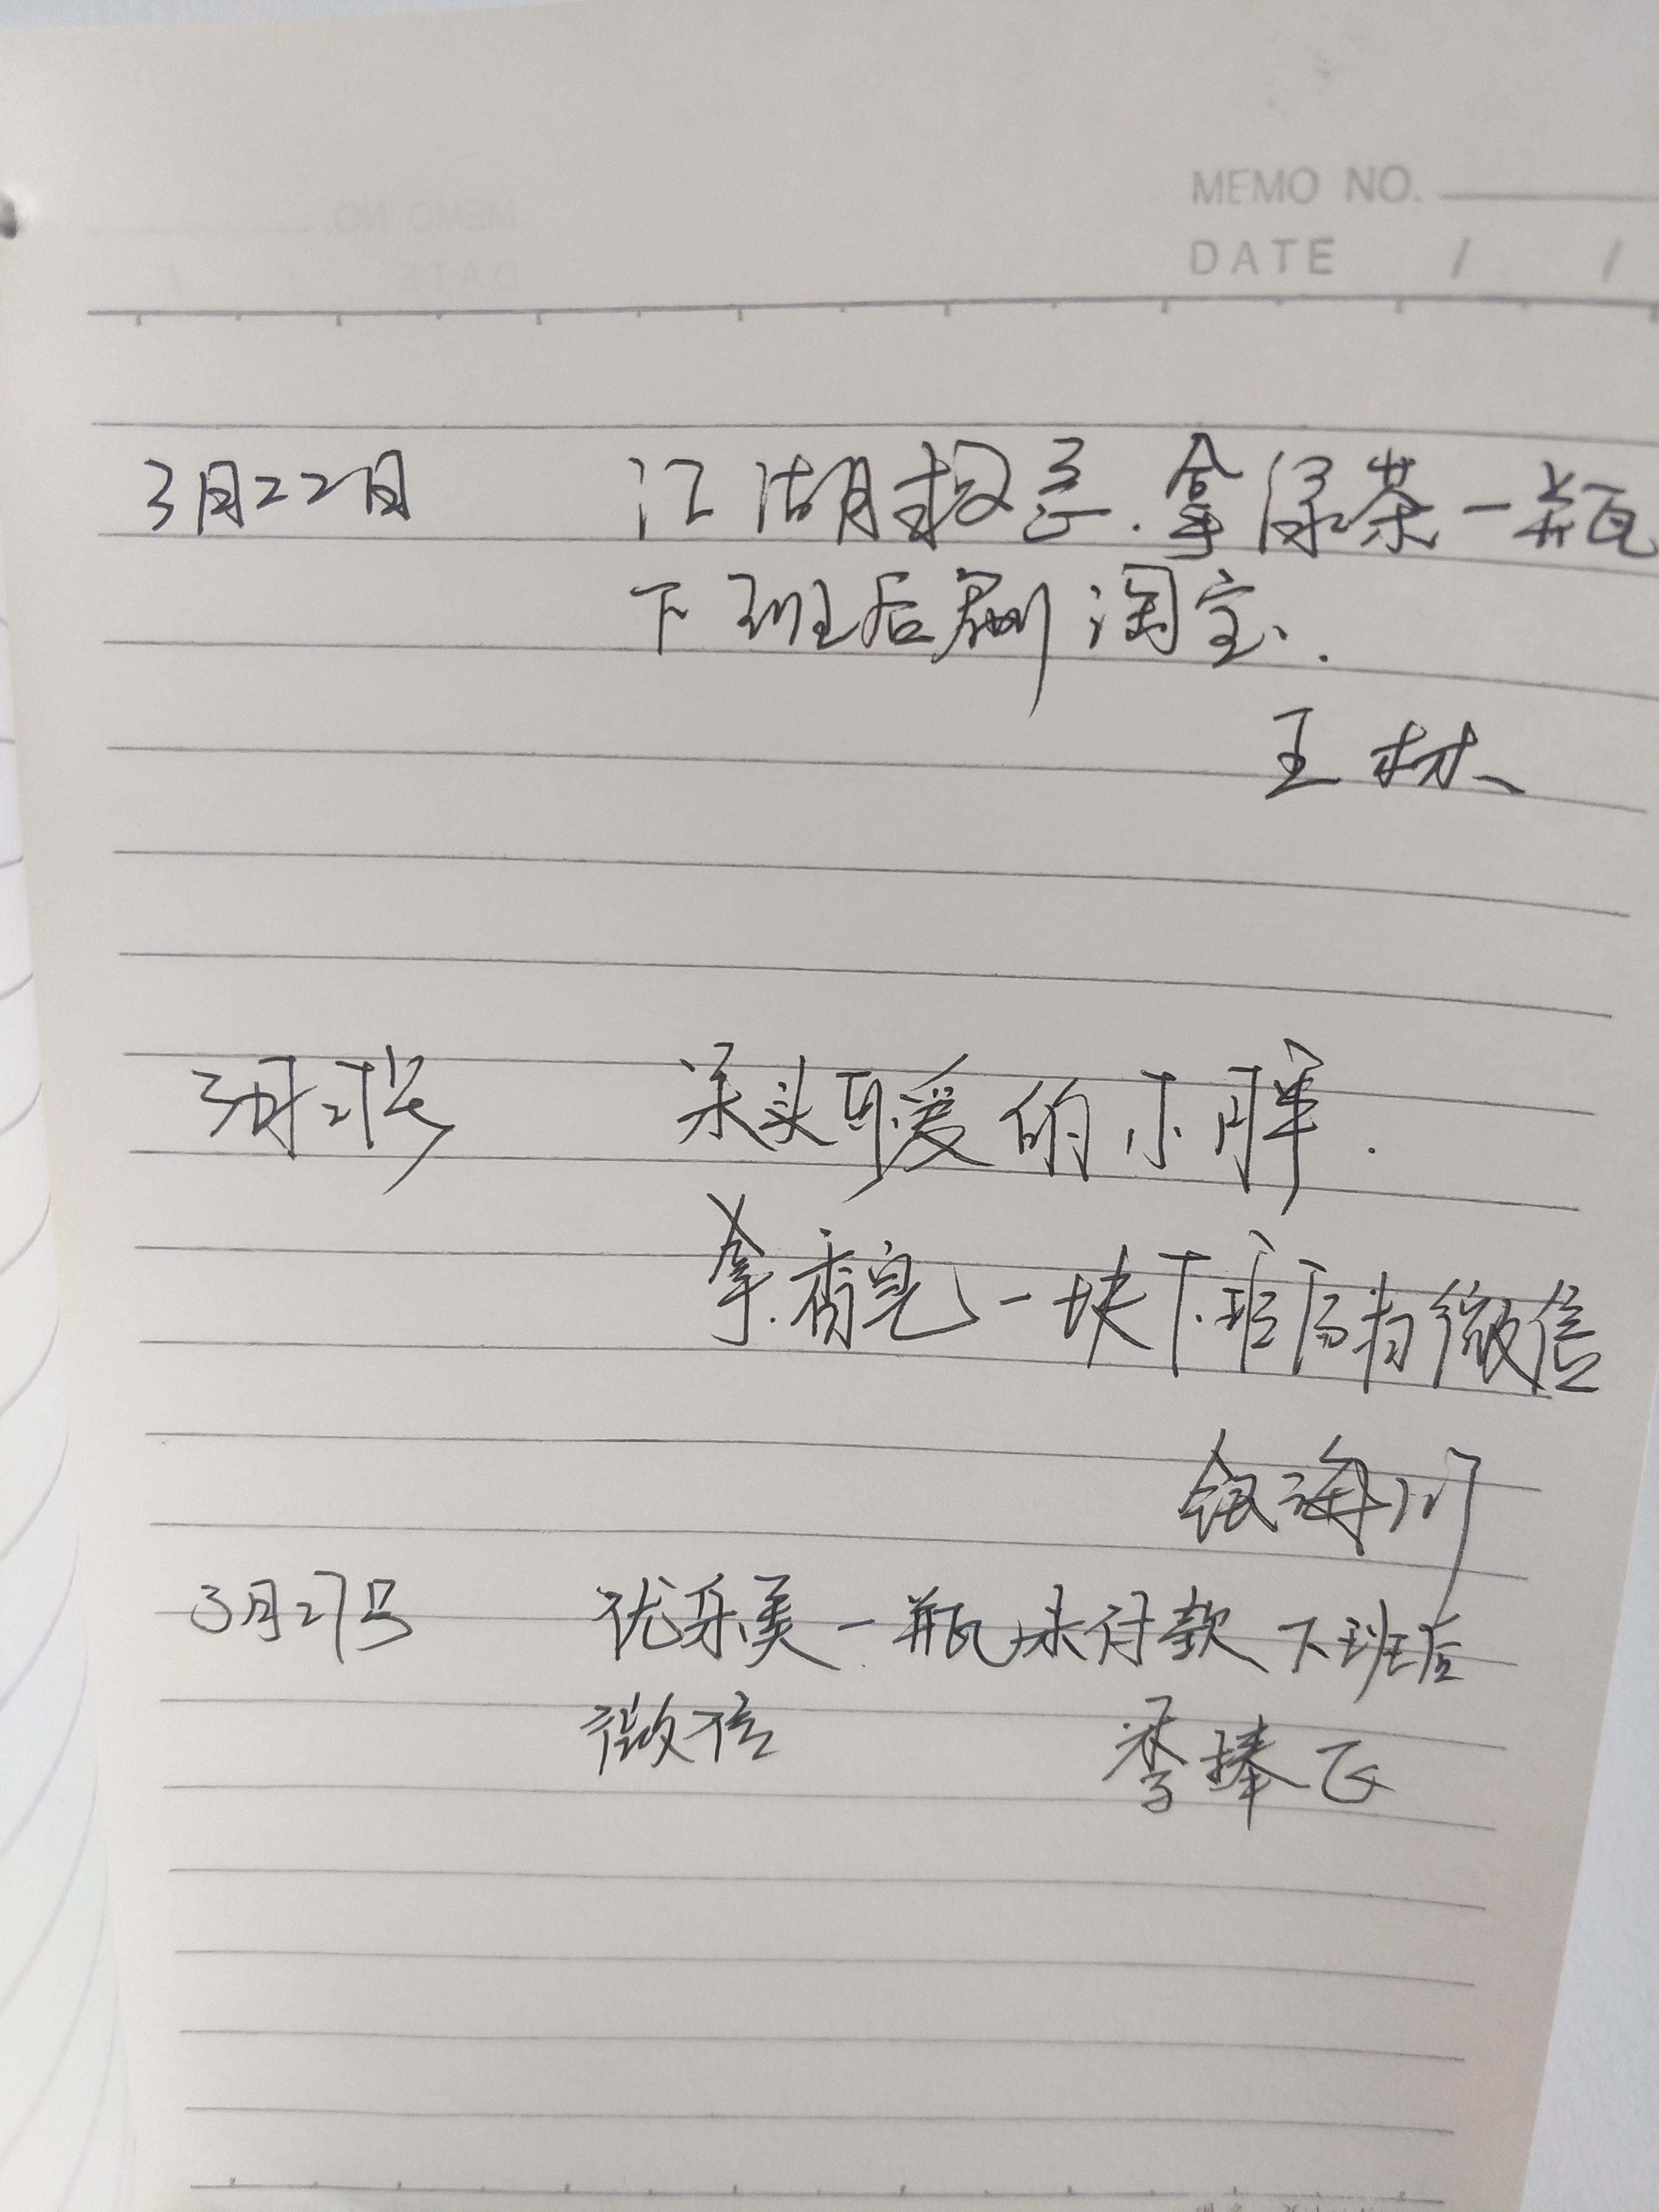 MEMO NO.
DATE / /
3月22日 江湖救急.拿绿茶一瓶
下班后刷淘宝.
王林
3月27号 呆头可爱的小胖.
拿香皂一块下班后扫微信
海川
3月27号 优乐美一瓶未付款下班后
微信 李捧飞